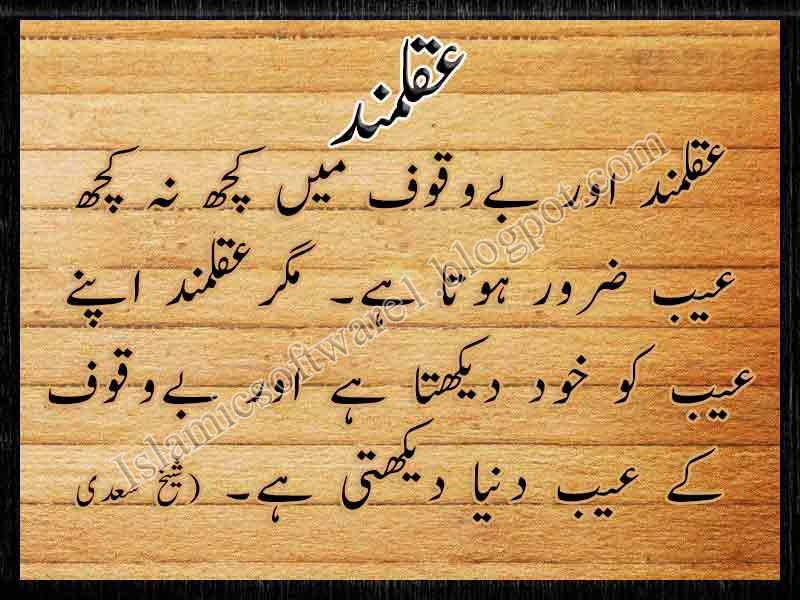 عقلمند
عقلمند اور بےوقوف میں کچھ نہ کچھ
عیب ضرور ہوتا ہے۔ مگر عقلمند اپنے
عیب کو خود دیکھتا ہے اور بےوقوف
کے عیب دنیا دیکھتی ہے۔ (شیخ سعدی
Islamicsoftware1.blogpot.com